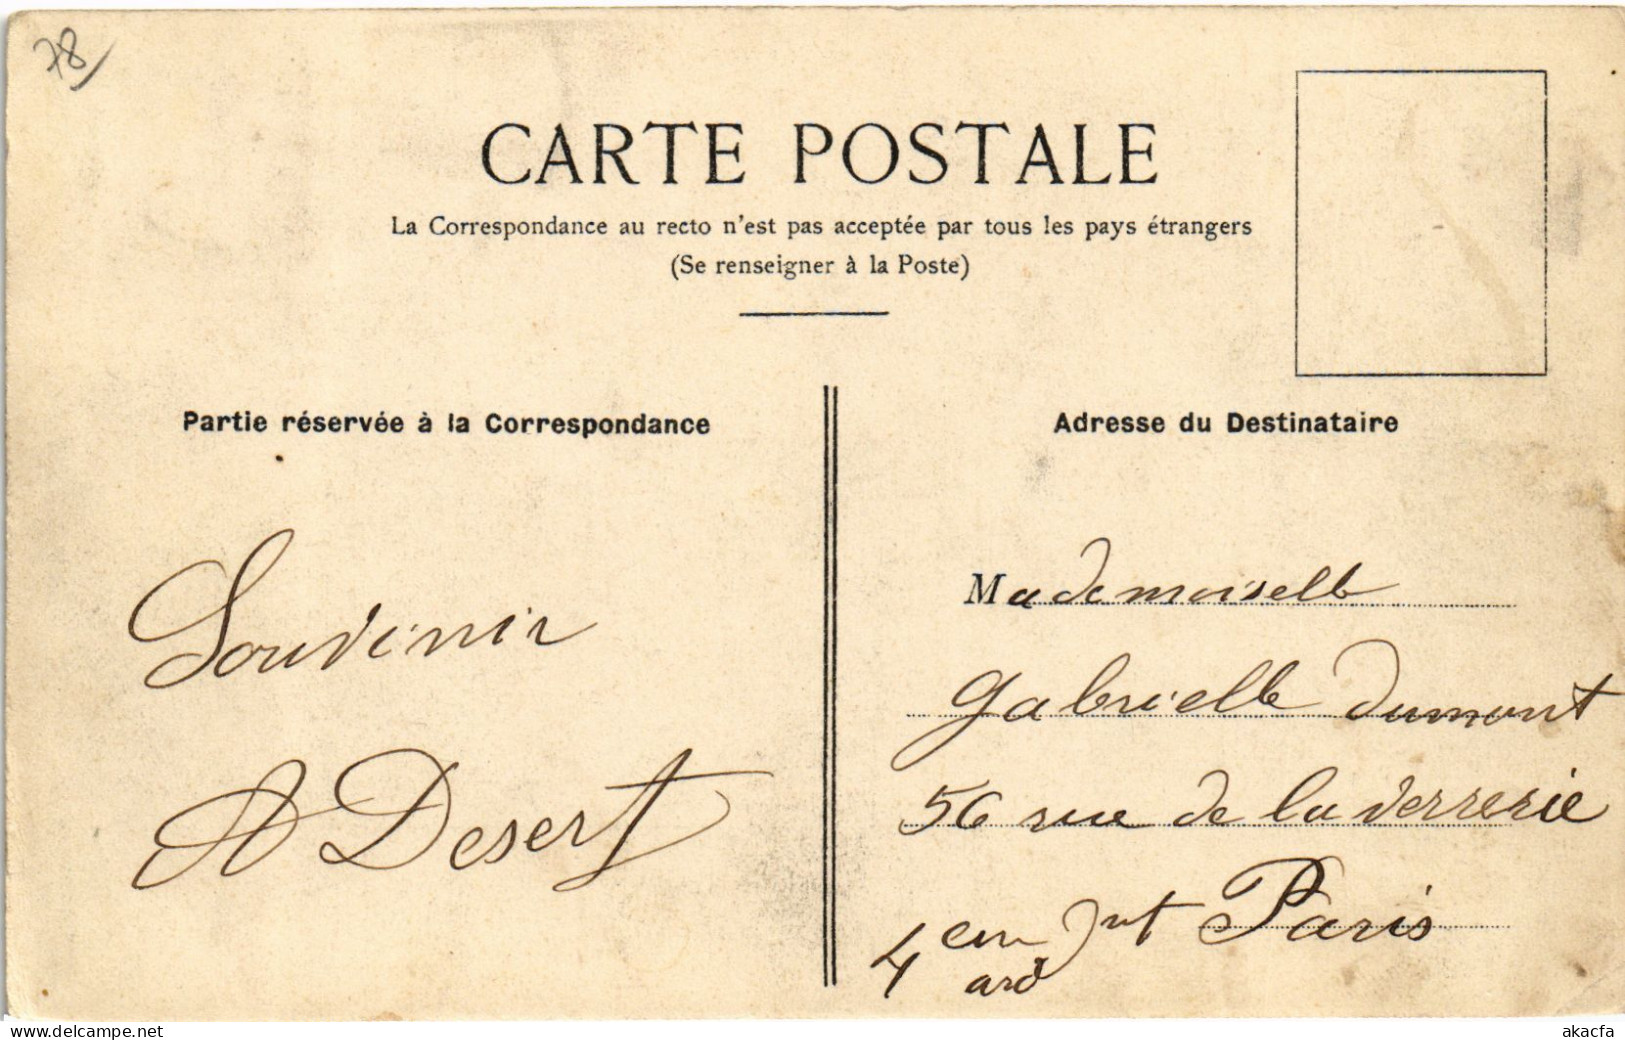 78
CARTE POSTALE
La Correspondance au recto n'est pas acceptée par tous les pays étrangers
(Se renseigner à la Poste)
Partie réservée à la Correspondance
Souvenir
A Desert
Adresse du Destinataire
Mademoiselle
Gabrielle Dumont
56 rue de la Verrerie
4em ard Paris
www.delcampe.net
akacfa